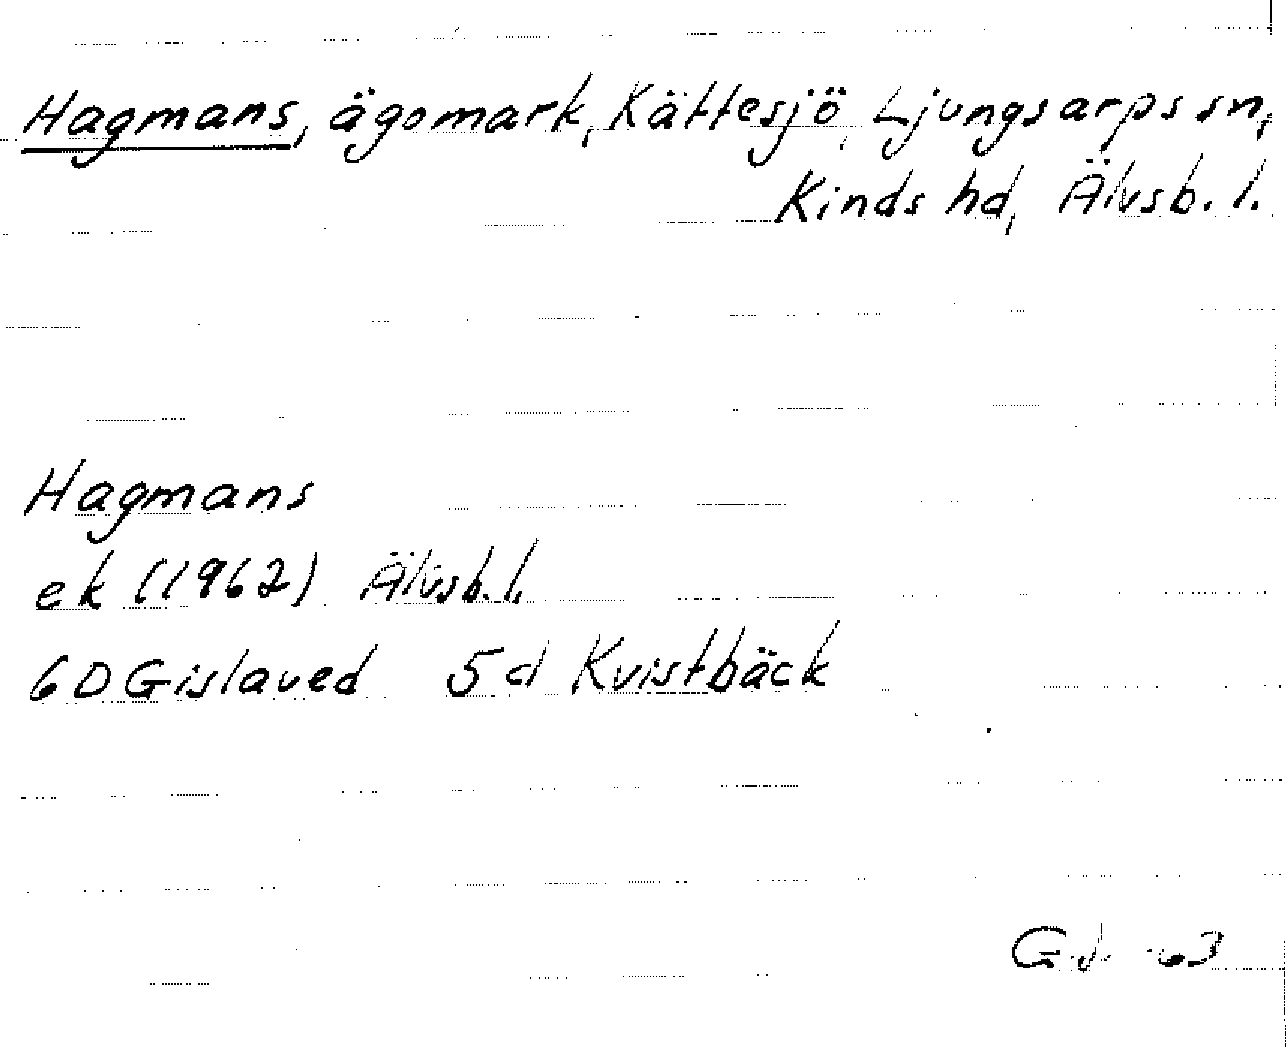 Hagmans, ägomark, Kättesjö, Ljungsarps sn,
Kinds hd, Älvsb. l.
Hagmans
ek (1962) Älvsb. l.
6D Gislaved 5d Kvistbäck